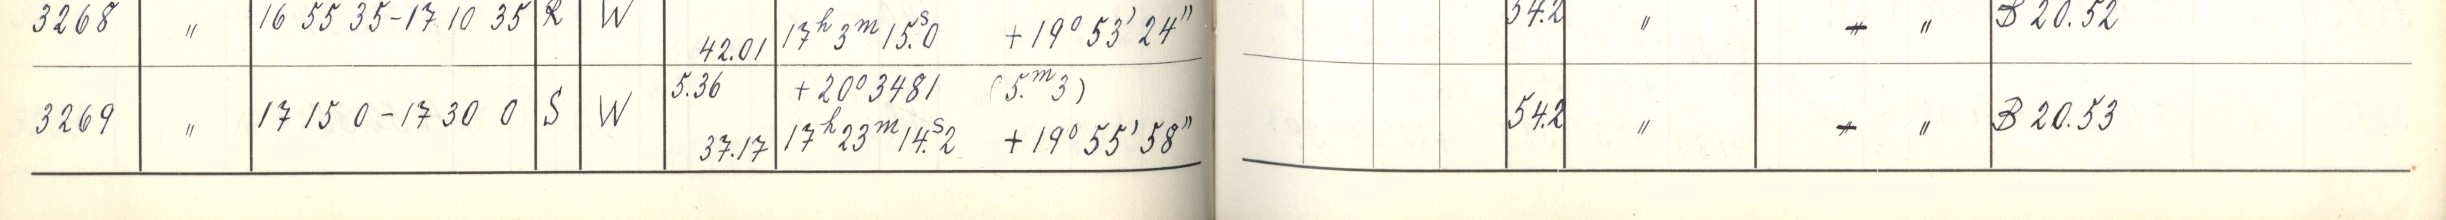 3268 " 16 55 35 - 17 10 35 R W 42.01 17h 3m 15.s0 + 19° 53' 24" 54.2 " " " B 20.52
5.36 + 20° 3481 (5.m3)
3269 " 17 15 0 - 17 30 0 S W 37.17 17h 23m 14.s2 + 19° 55' 58" 54.2 " " " B 20.53